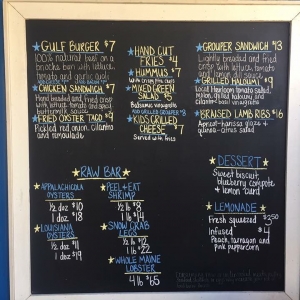 GULF BURGER $7
100% natural beef on a
brioche bun with lettuce,
tomato and garlic aioli
CHICKEN SANDWICH $7
Hand breaded and fried crisp
with lettuce, tomato and spicy
buttermilk sauce
FRIED OYSTER TACO $9
Pickled red onion, cilantra
and remoulade
HAND CUT
FRIES $4
HUMMUS $7
With crispy pita chips
MIXED GREEN
SALAD $5
Balsamic vinaigrette
ADD GRILLED GROUPER $8
KIDS GRILLED
CHEESE $7
Served with fries
GROUPER SANDWICH $13
Lightly breaded and fried
crisp with lettuce, tomato
and lemon dill sauce
GRILLED HALOUMI $9
Local heirloom tomato salad,
melon, grilled haloumi and
cilantro-basil vinaigrette
BRAISED LAMB RIBS $16
Apricot-harissa glaze +
quinoa-citrus salad
RAW BAR
APPALACHICOLA
OYSTERS
1/2 doz $10
1 doz $18
LOUISIANA
OYSTERS
1/2 doz $11
1 doz $19
PEEL+EAT
SHRIMP
1/2 lb $8
1 lb $14
SNOW CRAB
LEGS
1/2 lb $12
1 lb $22
WHOLE MAINE
LOBSTER
4 lb $65
DESSERT
Sweet biscuit,
blueberry compote
+ lemon curd
LEMONADE
Fresh squeezed $3.50
Infused $4
Peach, tarragon and
pink peppercorn